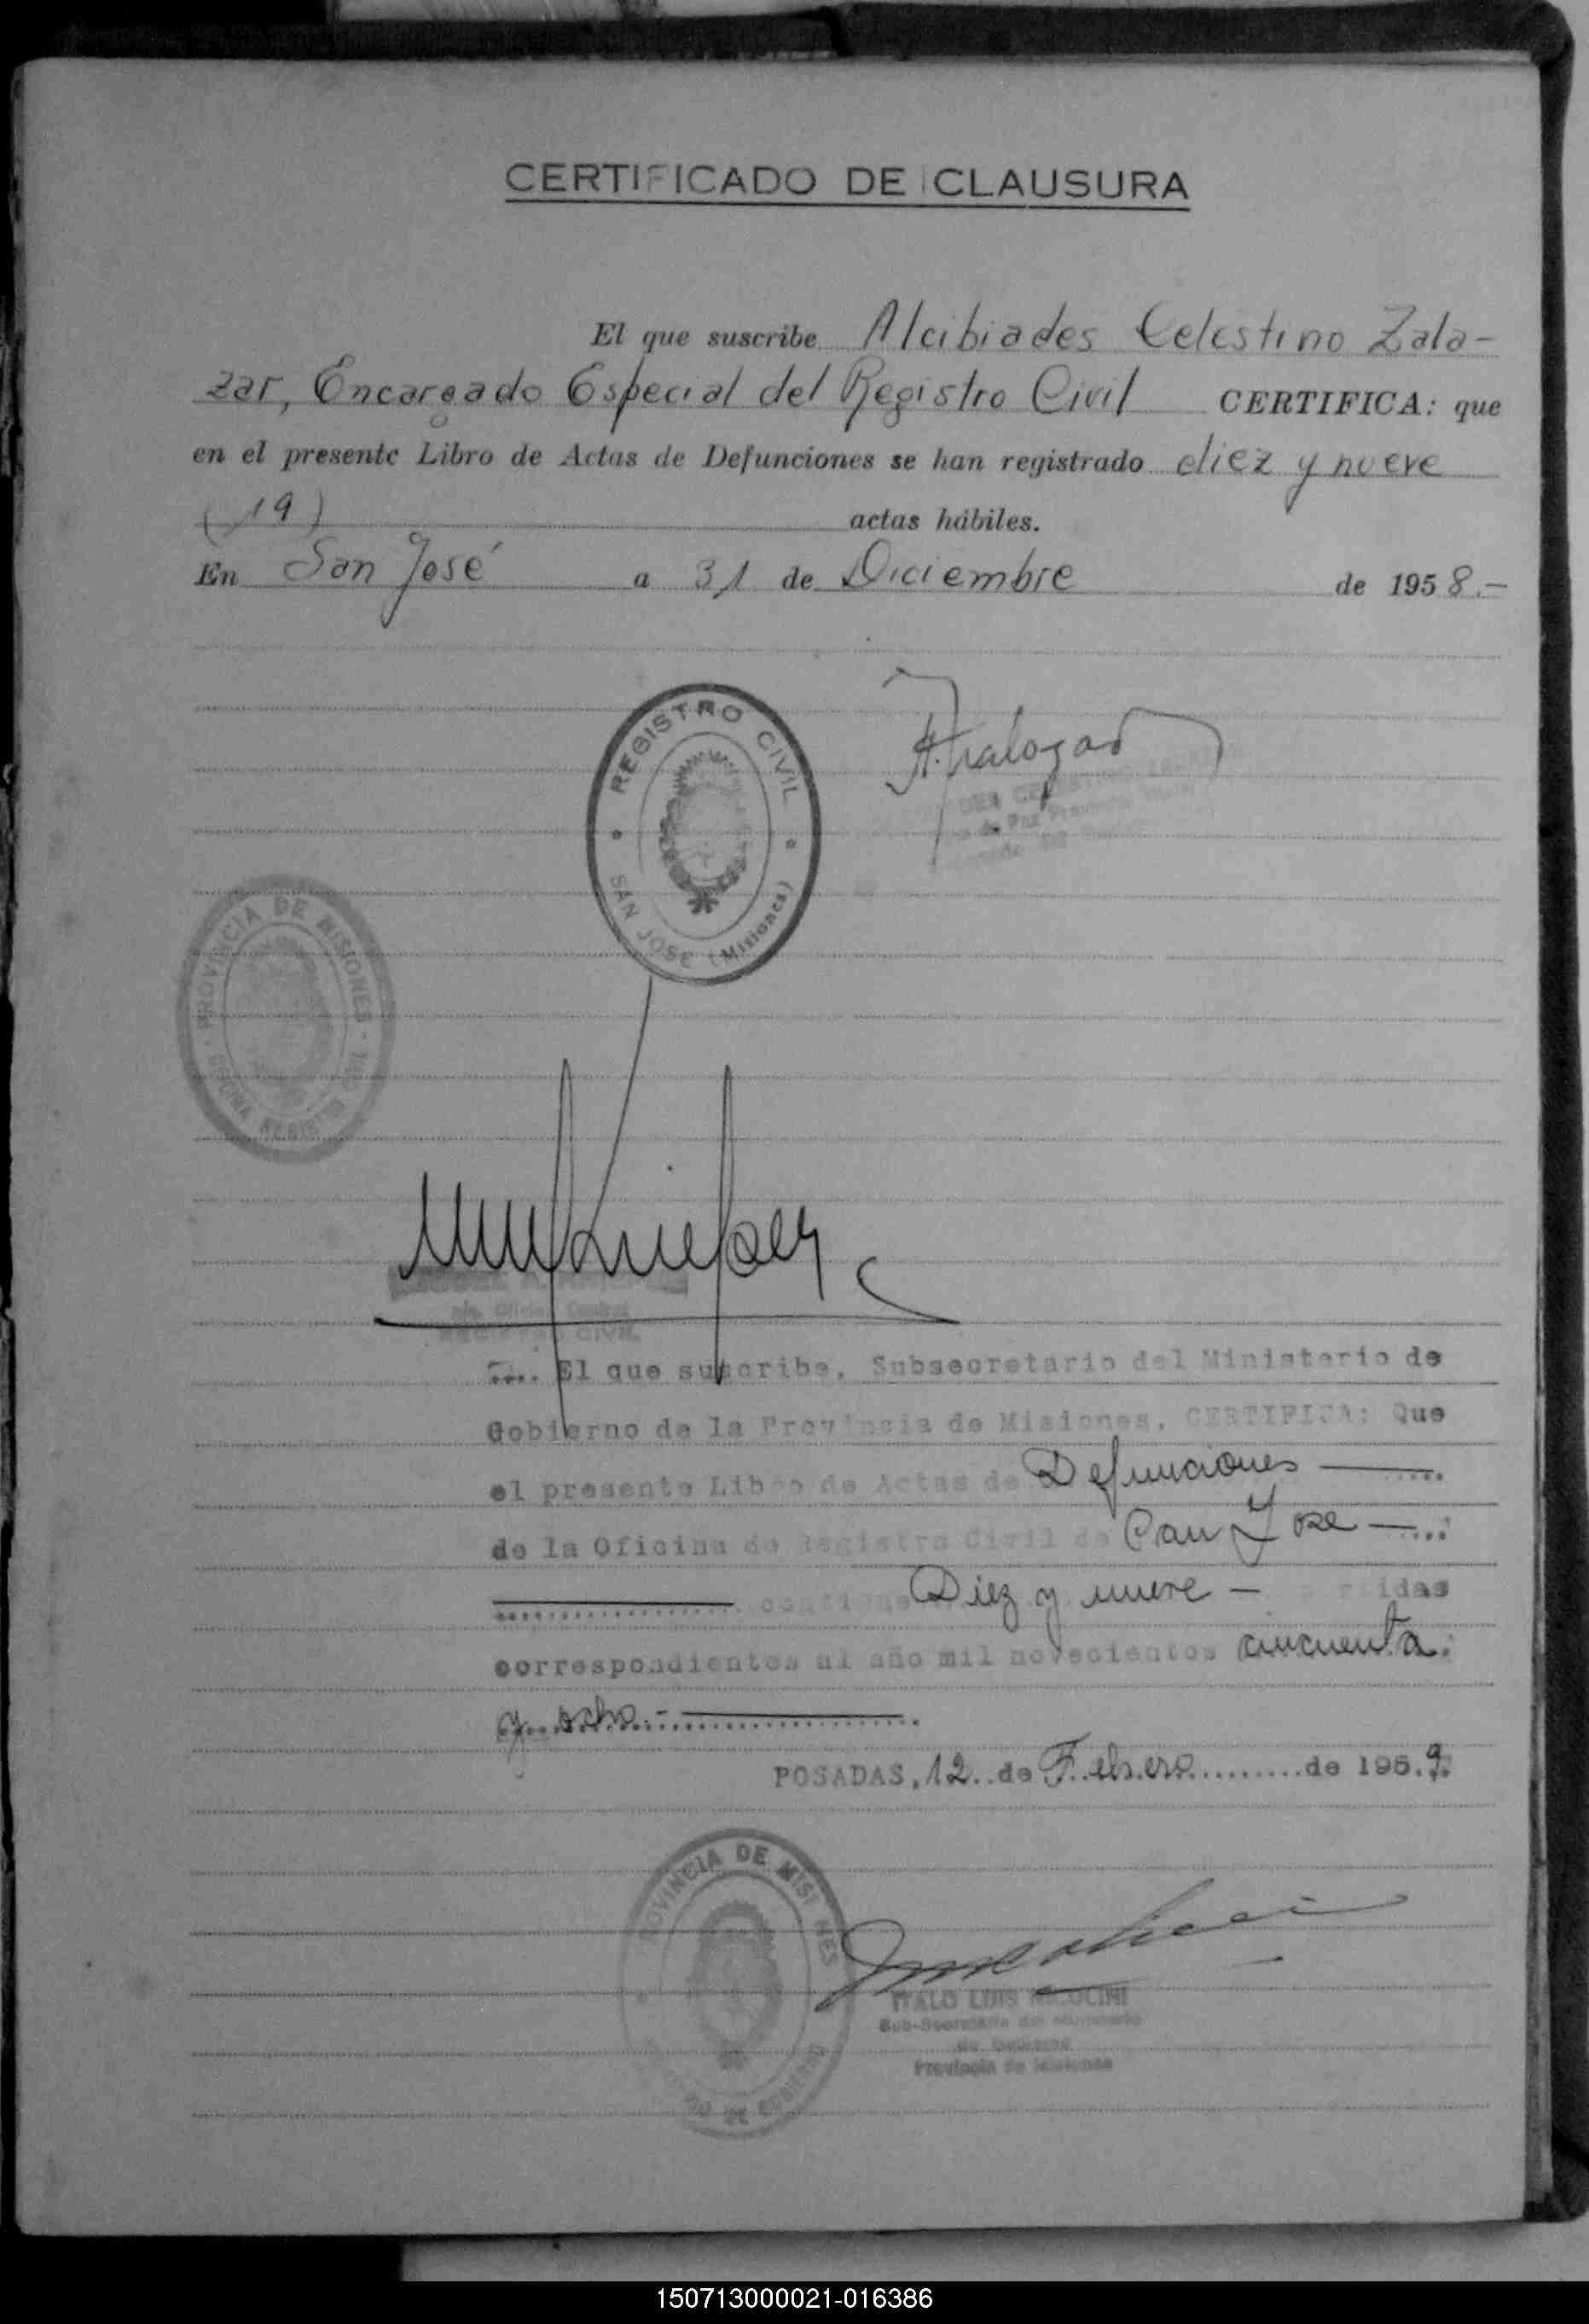 CERTIFICADO DE CLAUSURA
El que suscribe Alcibiades Celestino Zala-
zar, Encargado Especial del Registro Civil CERTIFICA: que
en el presente Libro de Actas de Defunciones se han registrado diez y nueve
(19) actas hábiles.
En San José a 31 de Diciembre de 1958.-
REGISTRO CIVIL
SAN JOSE (Misiones)
PROVINCIA DE MISIONES
Oficina Central
REGISTRO CIVIL
El que suscribe, Subsecretario del Ministerio de
Gobierno de la Provincia de Misiones, CERTIFICA: Que
el presente Libro de Actas de Defunciones
de la Oficina de Registro Civil de San Jose
contiene Diez y nueve - partidas
correspondientes al año mil novecientos cincuenta
y ocho.-
POSADAS, 12 de Febrero de 1959.
PROVINCIA DE MISIONES
ITALO LUIS
Sub-Secretario del Ministerio
de Gobierno
Provincia de Misiones
150713000021-016386